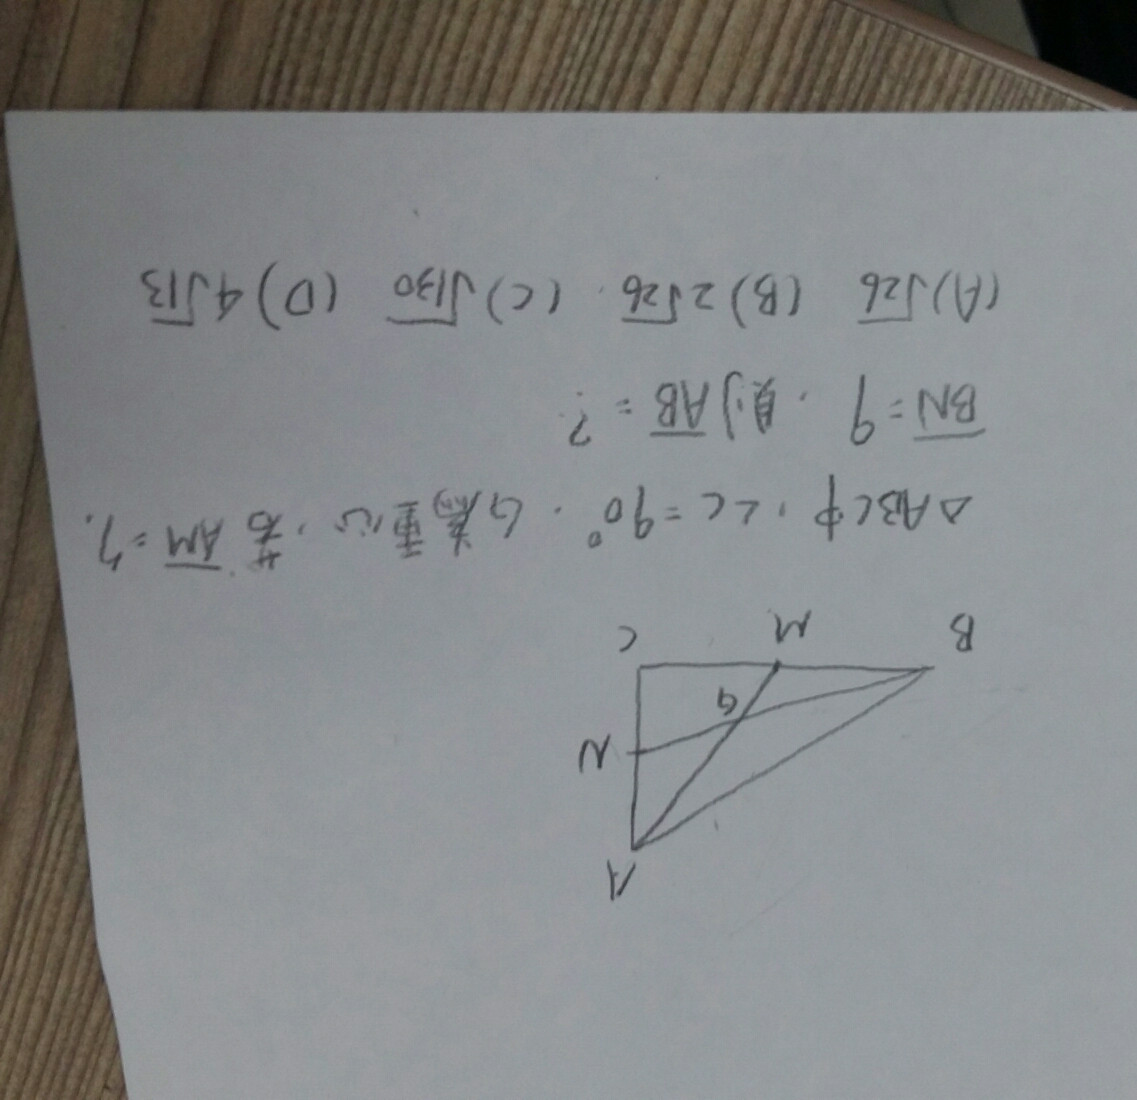 A
N
G
B M C
△ABC中，∠C=90°，G為重心，若 A̅M̅=7，
B̅N̅=9，則A̅B̅=?
(A)√26 (B)2√26 (C)√130 (D)4√13